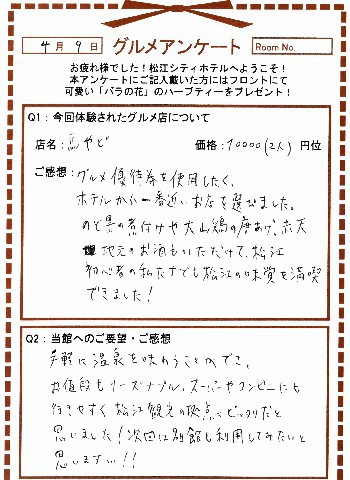 4月 9日 グルメアンケート Room No.
お疲れ様でした！松江シティホテルへようこそ！
本アンケートにご記入戴いた方にはフロントにて
可愛い「バラの花」のハーブティーをプレゼント！
Q1：今回体験されたグルメ店について
店名： やど 価格：10000(2人) 円位
ご感想：グルメ優待券を使用したく、
ホテルから一番近いお店を選びました。
のど黒の煮付けや大山鶏の唐あげ、赤天
地元のお酒もいただけて、松江
初心者の私たちでも松江の味覚を満喫
できました！
Q2：当館へのご要望・ご感想
手軽に温泉を味わうことができ、
お値段もリーズナブル、スーパーやコンビニにも
行きやすく松江観光の拠点にピッタリだと
思いました！次回は別館も利用してみたいと
思います!!